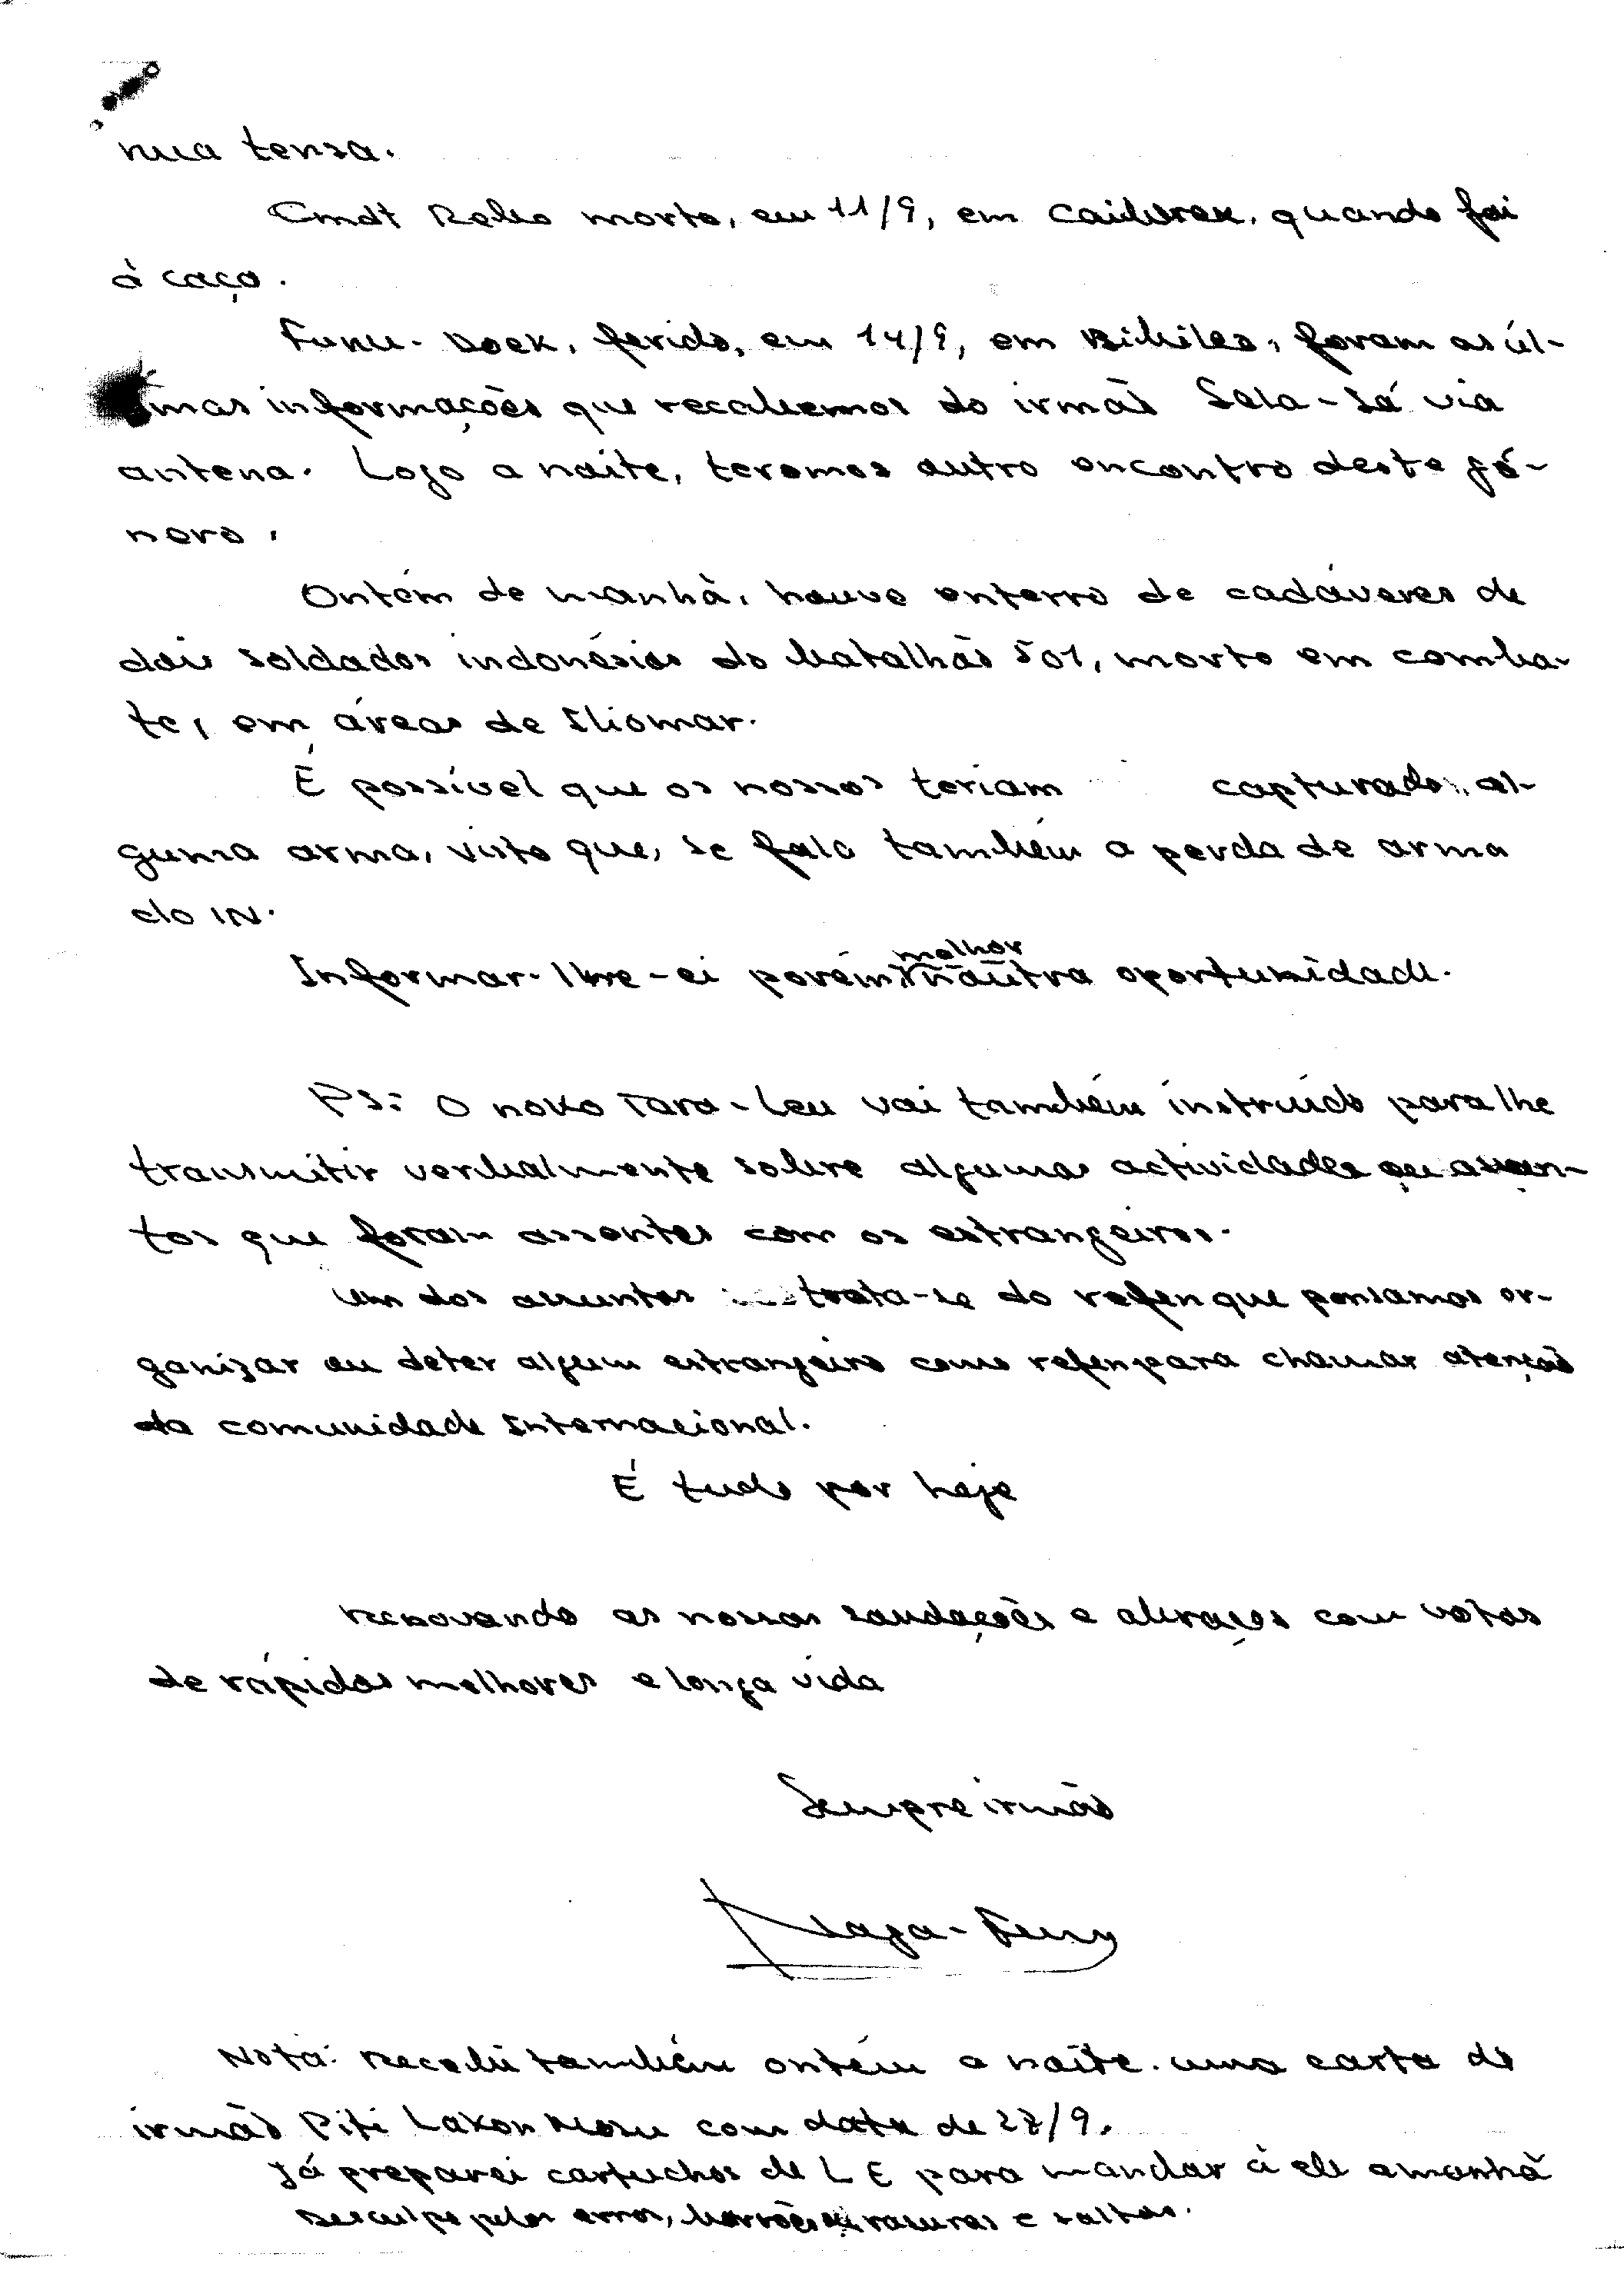 nua tensa.
Cmdt Reko morto, em 11/9, em quando foi
à caça.
Funu-Doek, ferido, em 14/9, em Bibileo, foram as úl-
mas informações que recebemos do irmão Sela-Sá via
antena. Logo a noite, teremos outro encontro deste gé-
nero.
Ontém de manhã, houve enterro de cadáveres de
dois soldados indonésios do batalhão 501, morto em comba-
te, em áreas de Iliomar.
É possível que os nossos teriam capturado, al-
guma arma, visto que, se fala também a perda de arma
do IN.
Informar-lhe-ei porém melhor nautra oportunidade.
PS: O novo Tara-Leu vai também instruído para lhe
transmitir verbalmente sobre algumas actividades ou assun-
tos que foram assentes com os estrangeiros.
Um dos assuntos trata-se do refen que pensamos or-
ganizar ou deter algum estrangeiro como refen para chamar atenção
da comunidade Internacional.
É tudo por hoje
renovando as nossas saudações e abraços com votos
de rápidas melhores e longa vida
Sempre irmão
Nota: Recebi também ontém a noite uma carta do
irmão Piti Lakon com data de 27/9.
Já preparei cartuchos de L E para mandar à ele amanhã
Desculpe pelos erros, borrões rasuras e saltos.